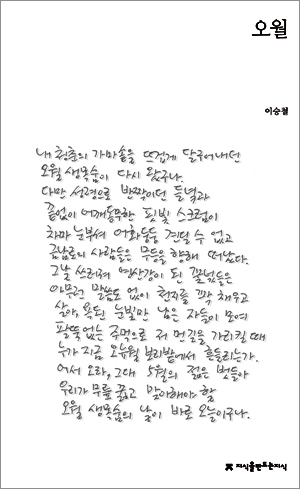 오월
이승철
내 청춘의 가마솥을 뜨겁게 달구어내던
오월 생목숨이 다시 왔구나.
다만 섬령으로 반짝이던 들녘과
끝없이 어깨동무한 핏빛 스크럼이
차마 눈부셔 어화둥둥 견딜 수 없고
금남로의 사람들은 무등을 향해 떠났다.
그날 쓰러져 영산강이 된 꽃넋들은
아무런 말씀도 없이 천지를 꽉 채우고
살아, 욕된 눈빛만 남은 자들이 모여
팔뚝없는 주먹으로 저 먼길을 가리킬 때
누가 지금 오뉴월 보리밭에서 흔들리는가.
어서 오라, 그대 5월의 젊은 벗들아
우리가 무릎 꿇고 맞아해야 할
오월 생목숨의 날이 바로 오늘이구나.
지식을만드는지식